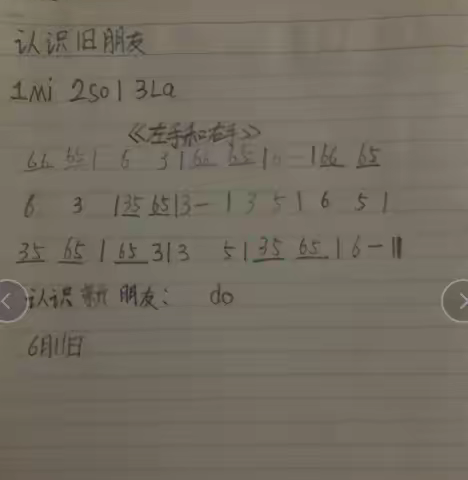 认识旧朋友
1mi 2sol 3La
《左手和右手》
66 65 | 6 3 | 66 65 | 6 - | 66 65
6 3 | 35 65 | 3 - | 3 5 | 6 5 |
35 65 | 65 3 | 3 5 | 35 65 | 6 - ||
认识新朋友: do
6月11日